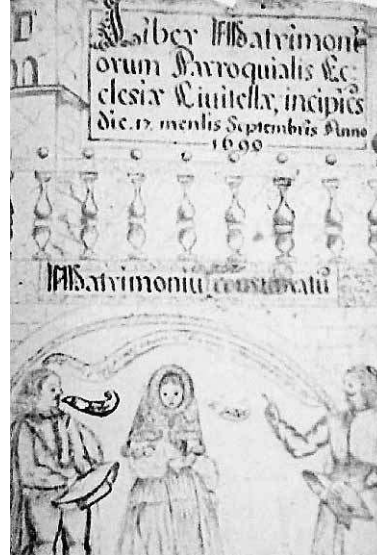 Liber Matrimoni
orum Parroquialis Ec:
clesiæ Ciuitellæ, incipiẽs
die. 17. mensis Septembris Anno
1690
Matrimoniũ consumatũ